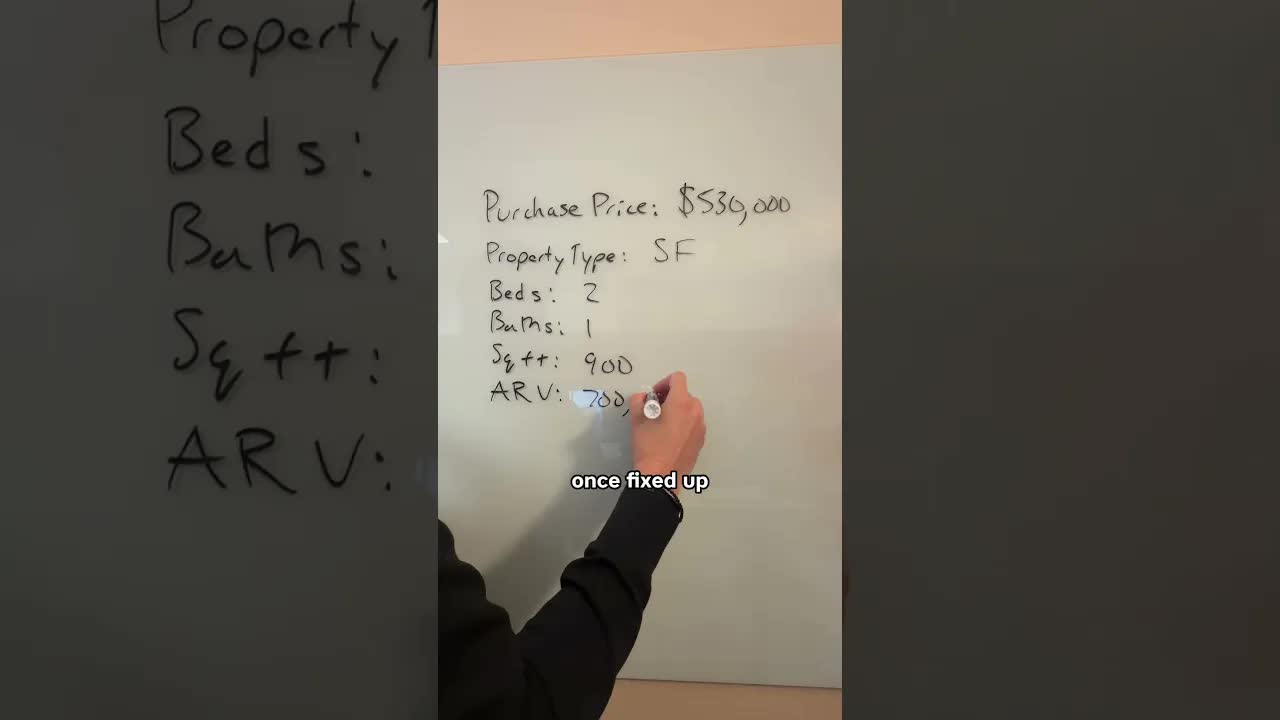 Purchase Price: $530,000
Property Type: SF
Beds: 2
Baths: 1
Sqft: 900
ARV: 700,
once fixed up
Property T
Beds:
Baths:
Sqft:
ARV: